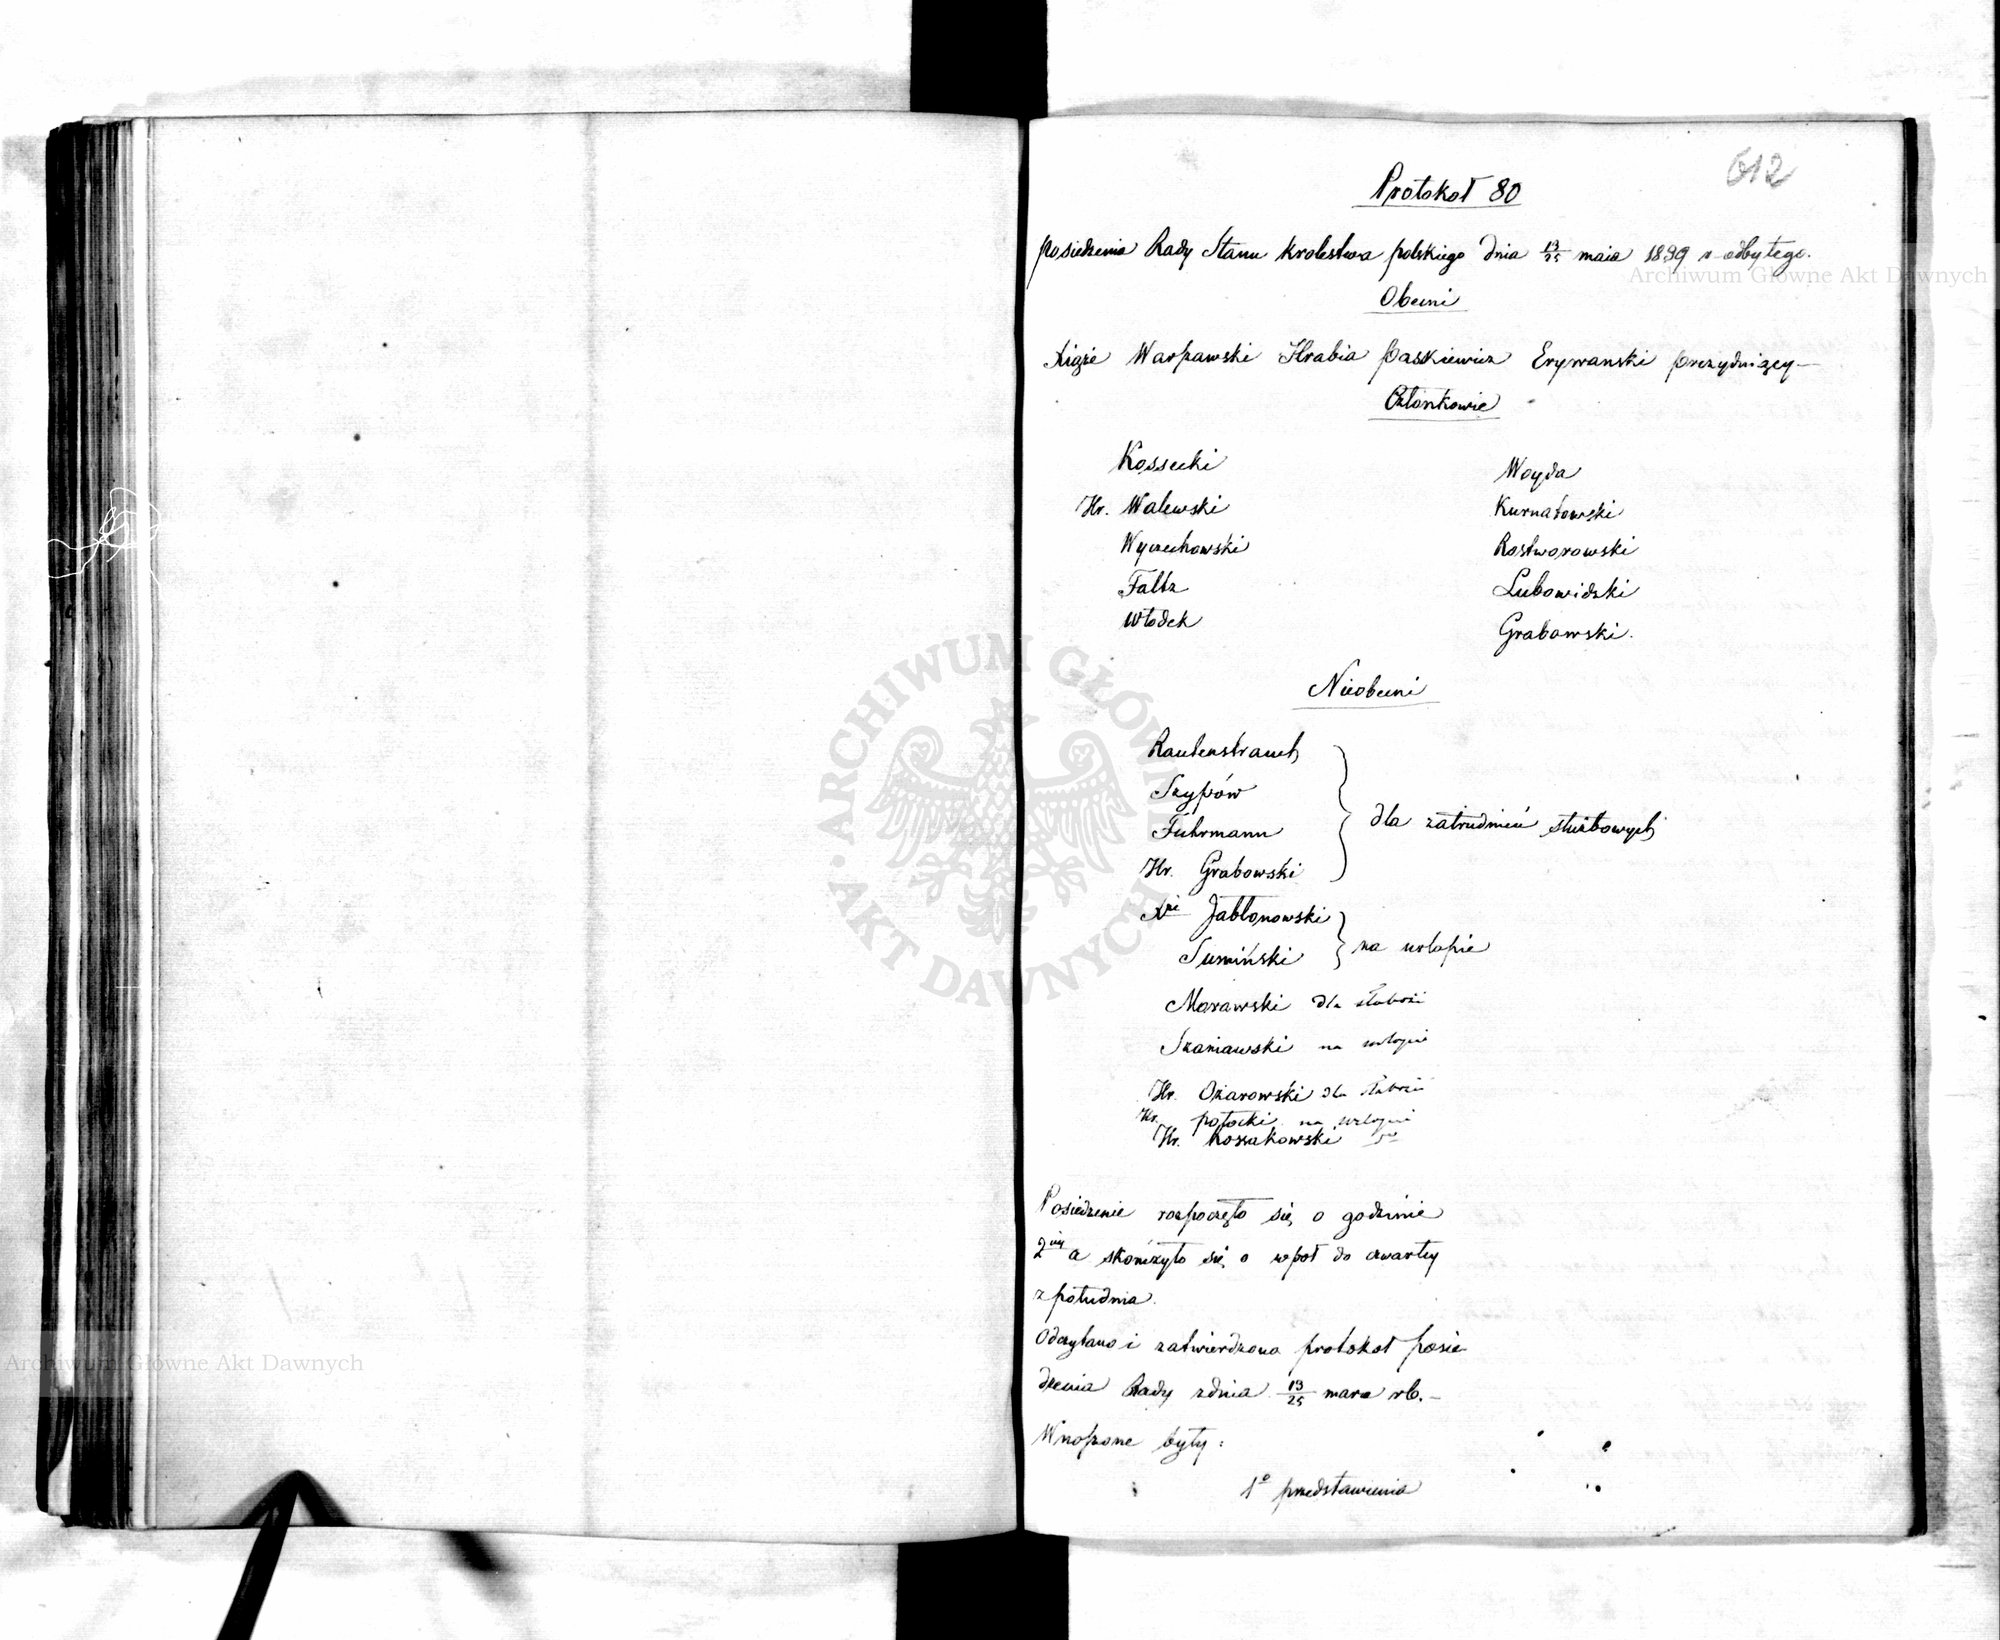 612
Protokoł 80
posiedzenia Rady Stanu Krolestwa polskiego dnia 13/25 maia 1839 r odbytego.
Obecni
Xiąże Warszawski Hrabia Paskiewicz Erywanski prezyduiący —
Członkowie
Kossecki Woyda
Hr. Walewski Kurnatowski
Wyczechowski Rostworowski
Faltz Lubowidzki
Włodek Grabowski.
Nieobecni
Rautenstrauch
Szypów
Fuhrmann
Hr. Grabowski
dla zatrudnień służbowych
Xże Jabłonowski
Sumiński
na urlopie
Morawski dla słabości
Szaniawski na urlopie
Hr. Ożarowski dla słabości
Hr. potocki na urlopie
Hr. Kossakowski do
Posiedzenie rozpoczęło się o godzinie
2iey a skończyło się o wpoł do czwartey
z południa.
Odczytano i zatwierdzono protokoł posie
dzenia Rady zdnia 13/25 marca rb. —
Wnoszone były:
1o przedstawienia
ARCHIWUM GŁÓWNE AKT DAWNYCH
Archiwum Główne Akt Dawnych
Archiwum Główne Akt Dawnych